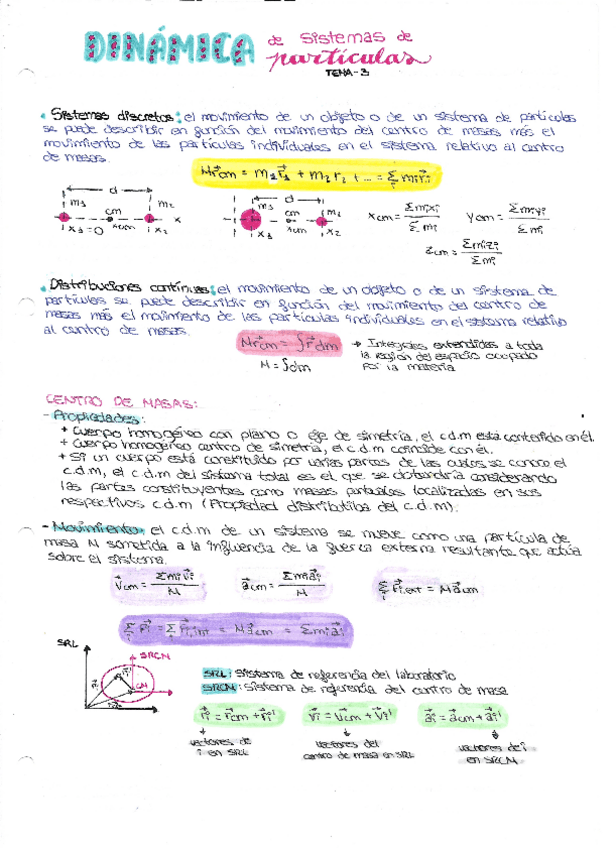 DINÁMICA de sistemas de partículas
TEMA-3
• Sistemas discretos: el movimiento de un objeto o de un sistema de partículas
se puede describir en función del movimiento del centro de masas más el
movimiento de las partículas individuales en el sistema relativo al centro
de masas.
M r⃗cm = m₁ r⃗₁ + m₂ r₂ + ... = Σ mᵢ r⃗ᵢ
d d
m₁ cm m₂ x m₁ cm m₂
x₁=0 xcm x₂ x₁ xcm x₂
xcm = Σmᵢxᵢ / Σmᵢ ycm = Σmᵢyᵢ / Σmᵢ
zcm = Σmᵢzᵢ / Σmᵢ
• Distribuciones continuas: el movimiento de un objeto o de un sistema de
partículas su puede describir en función del movimiento del centro de
masas más el movimiento de las partículas individuales en el sistema relativo
al centro de masas.
M r⃗cm = ∫ r⃗ dm → Integrales extendidas a toda
la región del espacio ocupado
M = ∫dm por la materia
CENTRO DE MASAS:
- Propiedades:
+ Cuerpo homogéneo con plano o eje de simetría, el c.d.m está contenido en él.
+ Cuerpo homogéneo centro de simetría, el c.d.m coincide con él.
+ Si un cuerpo está constituido por varias partes de las cuales se conoce el
c.d.m, el c.d.m del sistema total es el que se obtendría considerando
las partes constituyentes como masas puntuales localizadas en sus
respectivos c.d.m (Propiedad distributiva del c.d.m).
- Movimiento: el c.d.m de un sistema se mueve como una partícula de
masa M sometida a la influencia de la fuerza externa resultante que actúa
sobre el sistema.
v⃗cm = Σmᵢv⃗ᵢ / M a⃗cm = Σmᵢa⃗ᵢ / M Σ F⃗ᵢ,ext = M a⃗cm
Σ F⃗ᵢ = Σ F⃗ᵢ,int = M a⃗cm = Σmᵢa⃗ᵢ
SRL
SRCM
CM
SRL: Sistema de referencia del laboratorio
SRCM: Sistema de referencia del centro de masa
r⃗ᵢ = r⃗cm + r⃗ᵢ' v⃗ᵢ = v⃗cm + v⃗ᵢ' a⃗ᵢ = a⃗cm + a⃗ᵢ'
vectores de vectores del vectores de i
i en SRL centro de masa en SRL en SRCM